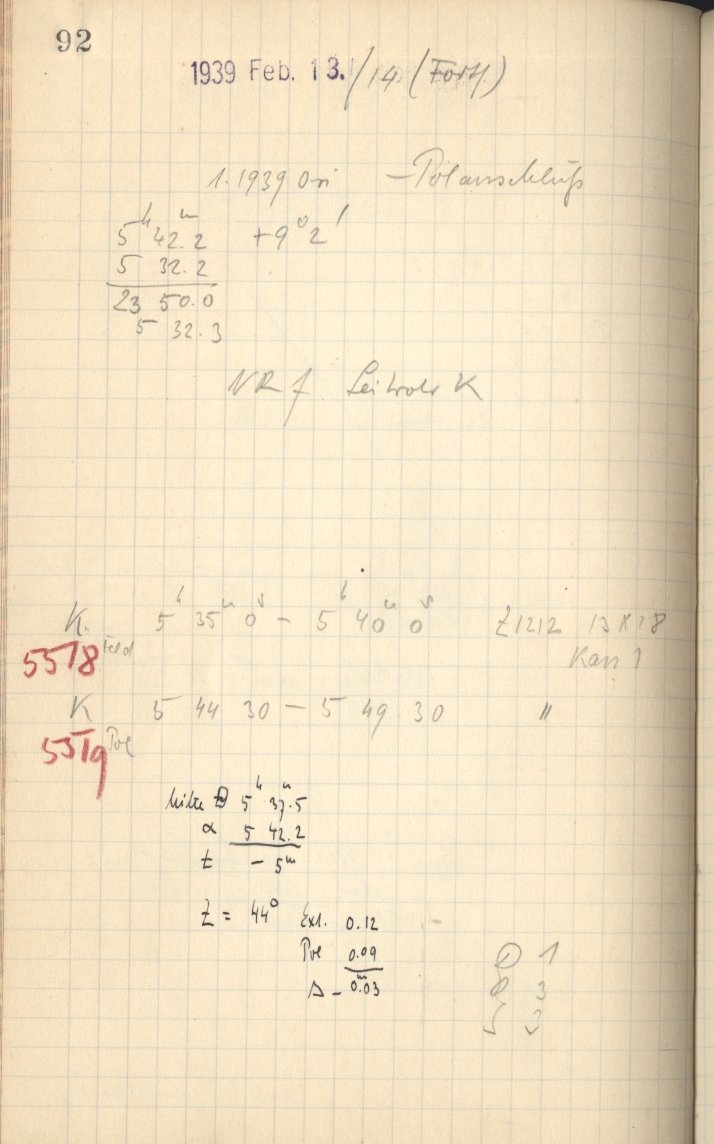 92
1939 Feb. 13./14 (Forts.)
1.1939 Ori — Polanschluß
5ʰ 42ᵐ.2 +9° 2'
5 32.2
23 50.0
5 32.3
NR f Leitrohr K
K. 5ʰ 35ᵐ 0ˢ — 5ʰ 40ᵐ 0ˢ Z1212 13x18
5518 Feld Kass 1
K 5 44 30 — 5 49 30 "
5519 Pol
Mitte 5ʰ 37ᵐ.5
α 5 42.2
t - 5ᵐ
Z = 44° Ext. 0.12
Pol 0.09
Δ - 0ᵐ.03
1
3
5 3